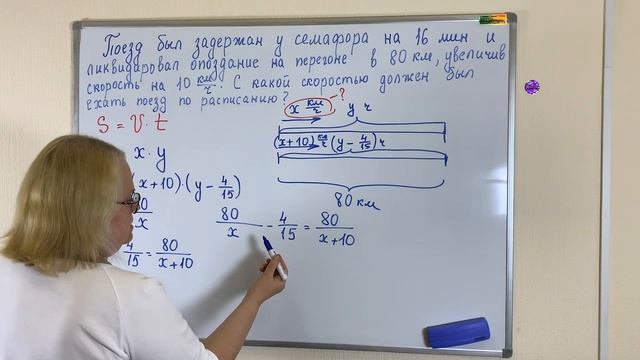 Поезд был задержан у семафора на 16 мин и
ликвидировал опоздание на перегоне в 80 км, увеличив
скорость на 10 км/ч. С какой скоростью должен был
ехать поезд по расписанию?
x км/ч ?
y ч
S = V · t
(x+10) км/ч (y − 4/15) ч
x · y
x + 10) · (y − 4/15)
80 км
80/x − 4/15 = 80/(x+10)
15 = 80/(x+10)